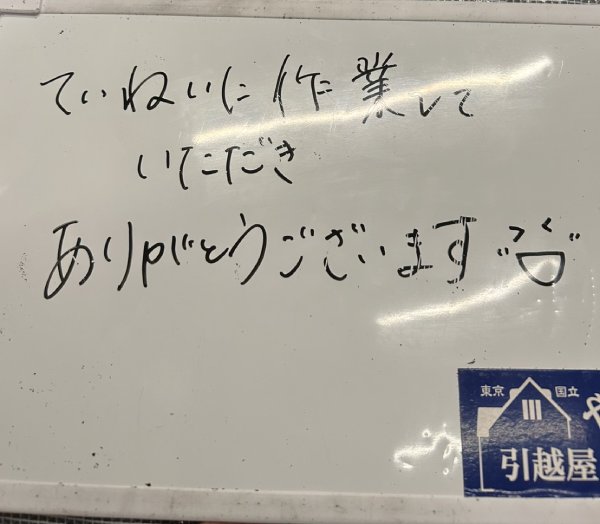 ていねいに作業して
いただき
ありがとうございます
東京 国立
引越屋